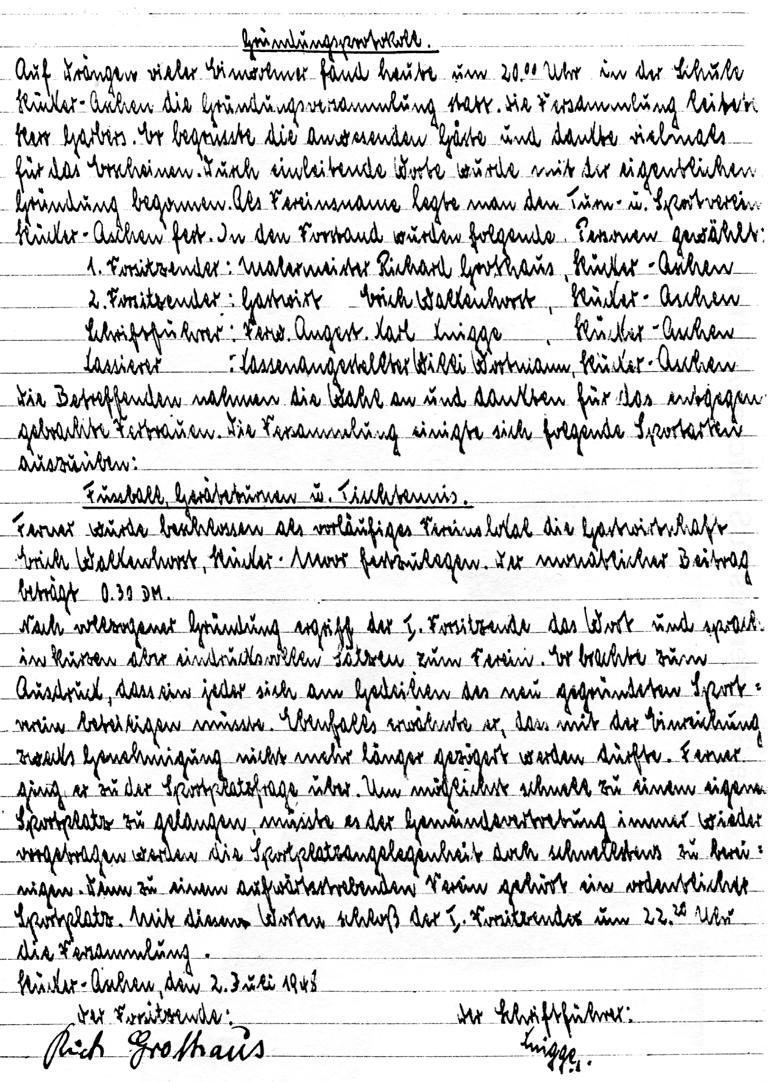 Gründungsprotokoll.
Auf Drängen vieler Einwohner fand heute um 20.00 Uhr in der Schule
Stücker-Aschen die Gründungsversammlung statt. Die Versammlung leitete
Herr Garbers. Er begrüsste die anwesenden Gäste und dankte vielmals
für das Erscheinen. Durch einleitende Worte wurde mit der eigentlichen
Gründung begonnen. Als Vereinsname legte man den Turn- u. Sportverein
Stücker-Aschen fest. In den Vorstand wurden folgende Personen gewählt:
1. Vorsitzender: Malermeister Richard Grothaus, Stücker-Aschen
2. Vorsitzender: Gastwirt Erich Waltenhorst, Stücker-Aschen
Schriftführer: Verw. Angest. Karl Knigge, Stücker-Aschen
Kassierer : Kassenangestellter Willi Wortmann, Stücker-Aschen
Die Betreffenden nahmen die Wahl an und dankten für das entgegen
gebrachte Vertrauen. Die Versammlung einigte sich folgende Sportarten
auszuüben:
Fussball, Geräteturnen u. Tischtennis.
Ferner wurde beschlossen als vorläufiges Vereinslokal die Gastwirtschaft
Erich Waltenhorst, Stücker-Moor festzulegen. Der monatlicher Beitrag
beträgt 0.30 DM.
Nach vollzogener Gründung ergriff der I. Vorsitzende das Wort und sprach
in kurzen aber eindrucksvollen Sätzen zum Verein. Er brachte zum
Ausdruck, dass ein jeder sich am Gedeihen des neu gegründeten Sport=
verein beteiligen müsste. Ebenfalls erwähnte er, dass mit der Einreichung
zwecks Genehmigung nicht mehr länger gezögert werden dürfte. Ferner
ging er zu der Sportplatzfrage über. Um möglichst schnell zu einem eigene
Sportplatz zu gelangen, müsste es der Gemeindevertretung immer wieder
vorgetragen werden die Sportplatzangelegenheit doch schnellstens zu berei=
nigen. Denn zu einem aufwärtsstrebenden Verein gehört ein ordentlicher
Sportplatz. Mit diesen Worten schloß der I. Vorsitzender um 22.20 Uhr
die Versammlung.
Stücker-Aschen, den 2. Juli 1948
Der Vorsitzende: Der Schriftführer:
Rich Grothaus Knigge.